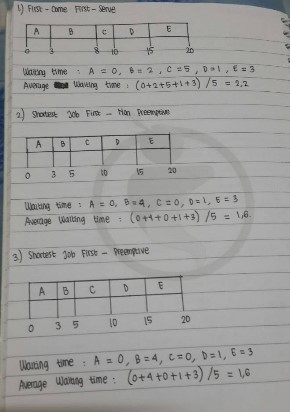 1) First - Come First - Serve
A B C D E
0 3 8 10 15 20
Waiting time : A = 0, B = 2, C = 5, D = 1, E = 3
Average Waiting time : (0+2+5+1+3) /5 = 2,2
2) Shortest Job First - Non Preemptive
A B C D E
0 3 5 10 15 20
Waiting time : A = 0, B = 4, C = 0, D = 1, E = 3
Average Waiting time : (0+4+0+1+3) /5 = 1,6.
3) Shortest Job First - Preemptive
A B C D E
0 3 5 10 15 20
Waiting time : A = 0, B = 4, C = 0, D = 1, E = 3
Average Waiting time : (0+4+0+1+3) /5 = 1,6